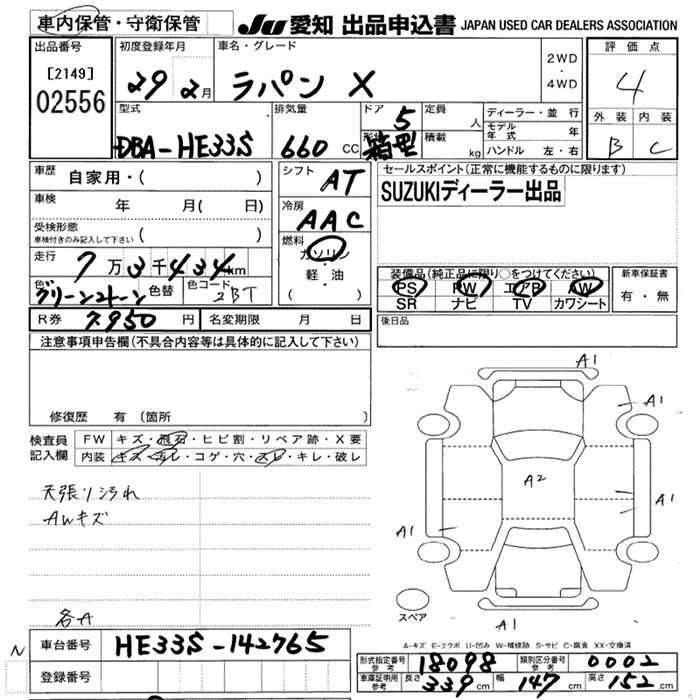 車内保管・守衛保管
JU 愛知 出品申込書 JAPAN USED CAR DEALERS ASSOCIATION
出品番号
[2149]
02556
初度登録年月
29 2月
車名・グレード
ラパン X
2WD
・
4WD
評価点
4
外装 内装
B C
型式
DBA-HE33S
排気量
660 CC
ドア 5
形状 箱型
定員
人
積載
kg
ディーラー・並行
モデル年式 年
ハンドル 左・右
車歴
自家用・( )
車検
年 月( 日)
受検形態
車検付きのみ記入して下さい ( )
走行
7万3千434km
色 グリーン2トーン
色替
色コード
2BT
シフト
AT
冷房
AAC
燃料
ガソリン
・
軽・油
( )
セールスポイント(正常に機能するものに限ります)
SUZUKIディーラー出品
装備品(純正品に限り○をつけてください)
PS PW エアB AW
SR ナビ TV カワシート
新車保証書
有・無
R券 7,950 円
名変期限 月 日
後日品
注意事項申告欄(不具合内容等は具体的に記入して下さい)
修復歴 有 (箇所 )
検査員記入欄
FW キズ・飛石・ヒビ割・リペア跡・X要
内装 キズ・汚レ・コゲ・穴・スレ・キレ・破レ
天張り汚れ
AWキズ
各A
A1
A1
A2
A1
A1
A1
スペア
A-キズ E-エクボ U-凹み W-補修跡 S-サビ C-腐食 XX-交換済
N
車台番号 HE33S-142765
登録番号
形式指定番号 参考 18098
類別区分番号 参考 0002
車庫証明用 参考 長さ 339 cm 幅 147 cm 高さ 152 cm